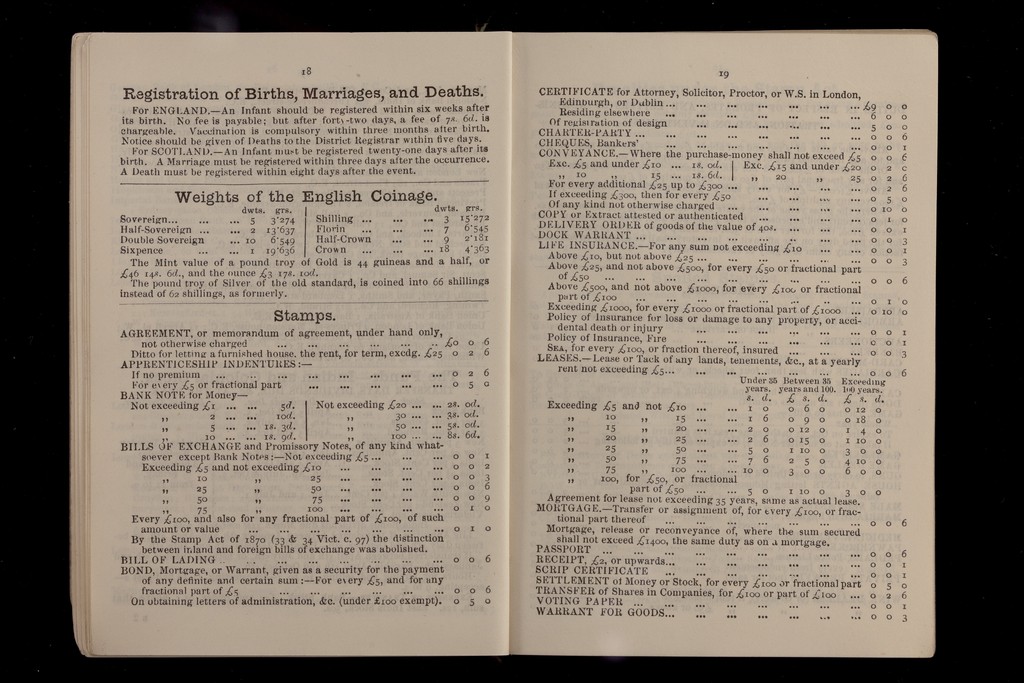 18
Registration of Births, Marriages, and Deaths.
For ENGLAND.—An Infant should be registered within six weeks after
its birth. No fee is payable; but after forty-two days, a fee of 7s. 6d. is
chargeable. Vaccination is compulsory within three months after birth.
Notice should be given of Deaths to the District Registrar within five days.
For SCOTLAND.—An Infant must be registered twenty-one days after its
birth. A Marriage must be registered within three days after the occurrence.
A Death must be registered within eight days after the event.
Weights of the English Coinage.
dwts. grs. dwts. grs.
Sovereign... ... ... 5 3'274 Shilling ... ... ... 3 15'272
Half-Sovereign ... ... 2 13'637 Florin ... ... ... 7 6'545
Double Sovereign ... 10 6'549 Half-Crown ... ... 9 2'181
Sixpence ... ... 1 19'636 Crown ... ... ... 18 4'363
The Mint value of a pound troy of Gold is 44 guineas and a half, or
£46 14s. 6d., and the ounce £3 17s. 10d.
The pound troy of Silver of the old standard, is coined into 66 shillings
instead of 62 shillings, as formerly.
Stamps.
AGREEMENT, or memorandum of agreement, under hand only,
not otherwise charged ... ... ... ... ... ... £0 0 6
Ditto for letting a furnished house, the rent, for term, excdg. £25 0 2 6
APPRENTICESHIP INDENTURES:—
If no premium ... ... ... ... ... ... ... 0 2 6
For every £5 or fractional part ... ... ... ... ... 0 5 0
BANK NOTE for Money—
Not exceeding £1 ... ... 5d. Not exceeding £20 ... ... 2s. 0d.
,, 2 ... ... 10d. ,, 30 ... ... 3s. 0d.
,, 5 ... ... 1s. 3d. ,, 50 ... ... 5s. 0d.
,, 10 ... ... 1s. 9d. ,, 100 ... ... 8s. 6d.
BILLS OF EXCHANGE and Promissory Notes, of any kind what-
soever except Bank Notes:—Not exceeding £5 ... ... ... 0 0 1
Exceeding £5 and not exceeding £10 ... ... ... ... 0 0 2
,, 10 ,, 25 ... ... ... ... 0 0 3
,, 25 ,, 50 ... ... ... ... 0 0 6
,, 50 ,, 75 ... ... ... ... 0 0 9
,, 75 ,, 100 ... ... ... ... 0 1 0
Every £100, and also for any fractional part of £100, of such
amount or value ... ... ... ... ... ... 0 1 0
By the Stamp Act of 1870 (33 & 34 Vict. c. 97) the distinction
between inland and foreign bills of exchange was abolished.
BILL OF LADING ... ... ... ... ... ... ... 0 0 6
BOND, Mortgage, or Warrant, given as a security for the payment
of any definite and certain sum:—For every £5, and for any
fractional part of £5 ... ... ... ... ... ... 0 0 6
On obtaining letters of administration, &c. (under £100 exempt). 0 5 0
19
CERTIFICATE for Attorney, Solicitor, Proctor, or W.S. in London,
Edinburgh, or Dublin ... ... ... ... ... ... £9 0 0
Residing elsewhere ... ... ... ... ... ... 6 0 0
Of registration of design ... ... ... ... ... 5 0 0
CHARTER-PARTY ... ... ... ... ... ... ... 0 0 6
CHEQUES, Bankers' ... ... ... ... ... ... 0 0 1
CONVEYANCE.—Where the purchase-money shall not exceed £5 0 0 6
Exc. £5 and under £10 ... 1s. 0d. Exc. £15 and under £20 0 2 0
,, 10 ,, 15 ... 1s. 6d. ,, 20 ,, 25 0 2 6
For every additional £25 up to £300 ... ... ... ... ... 0 2 6
If exceeding £300, then for every £50 ... ... ... ... 0 5 0
Of any kind not otherwise charged ... ... ... ... ... 0 10 0
COPY or Extract attested or authenticated ... ... ... ... 0 1 0
DELIVERY ORDER of goods of the value of 40s. ... ... ... 0 0 1
DOCK WARRANT ... ... ... ... ... ... ... 0 0 3
LIFE INSURANCE.—For any sum not exceeding £10 ... ... 0 0 1
Above £10, but not above £25 ... ... ... ... ... 0 0 3
Above £25, and not above £500, for every £50 or fractional part
of £50 ... ... ... ... ... ... ... 0 0 6
Above £500, and not above £1000, for every £100 or fractional
part of £100 ... ... ... ... ... ... ... 0 1 0
Exceeding £1000, for every £1000 or fractional part of £1000 ... 0 10 0
Policy of Insurance for loss or damage to any property, or acci-
dental death or injury ... ... ... ... ... ... 0 0 1
Policy of Insurance, Fire ... ... ... ... ... ... 0 0 1
SEA, for every £100, or fraction thereof, insured ... ... ... 0 0 3
LEASES.—Lease or Tack of any lands, tenements, &c., at a yearly
rent not exceeding £5... ... ... ... ... ... ... 0 0 6
Under 35 Between 35 Exceeding
years. years and 100. 100 years.
s. d. £ s. d. £ s. d.
Exceeding £5 and not £10 ... ... 1 0 0 6 0 0 12 0
,, 10 ,, 15 ... ... 1 6 0 9 0 0 18 0
,, 15 ,, 20 ... ... 2 0 0 12 0 1 4 0
,, 20 ,, 25 ... ... 2 6 0 15 0 1 10 0
,, 25 ,, 50 ... ... 5 0 1 10 0 3 0 0
,, 50 ,, 75 ... ... 7 6 2 5 0 4 10 0
,, 75 ,, 100 ... ... 10 0 3 0 0 6 0 0
,, 100, for £50, or fractional
part of £50 ... ... 5 0 1 10 0 3 0 0
Agreement for lease not exceeding 35 years, same as actual lease.
MORTGAGE.—Transfer or assignment of, for every £100, or frac-
tional part thereof ... ... ... ... ... ... 0 0 6
Mortgage, release or reconveyance of, where the sum secured
shall not exceed £1400, the same duty as on a mortgage.
PASSPORT ... ... ... ... ... ... ... 0 0 6
RECEIPT, £2, or upwards... ... ... ... ... ... 0 0 1
SCRIP CERTIFICATE ... ... ... ... ... ... 0 0 1
SETTLEMENT of Money or Stock, for every £100 or fractional part 0 5 0
TRANSFER of Shares in Companies, for £100 or part of £100 ... 0 2 6
VOTING PAPER ... ... ... ... ... ... ... 0 0 1
WARRANT FOR GOODS... ... ... ... ... ... 0 0 3